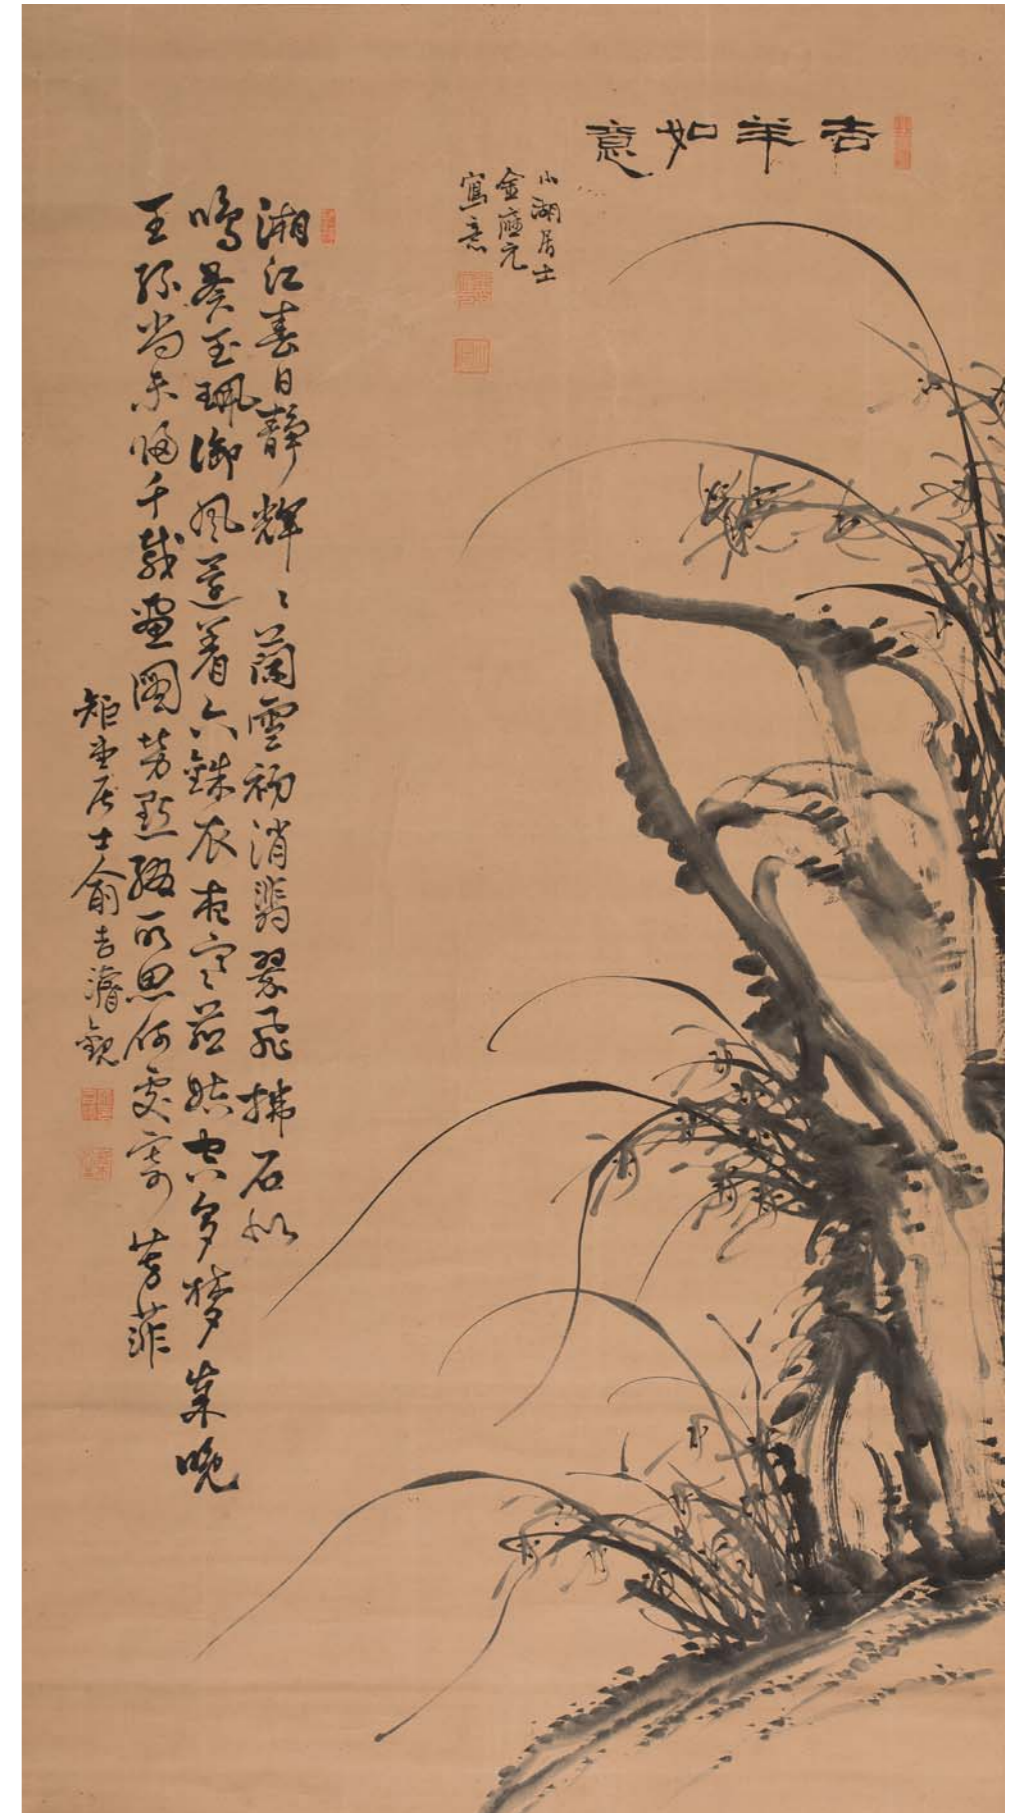 吉羊如意
小湖居士
金應元
寫意
湘江春日靜輝〻蘭雪初消翡翠飛拂石似
鳴蒼玉珮御風還着六銖衣夜寒燕姞空多夢歲晚
王孫尚未歸千載畫圖勞點綴所思何處寄芳菲
矩堂居士俞吉濬觀